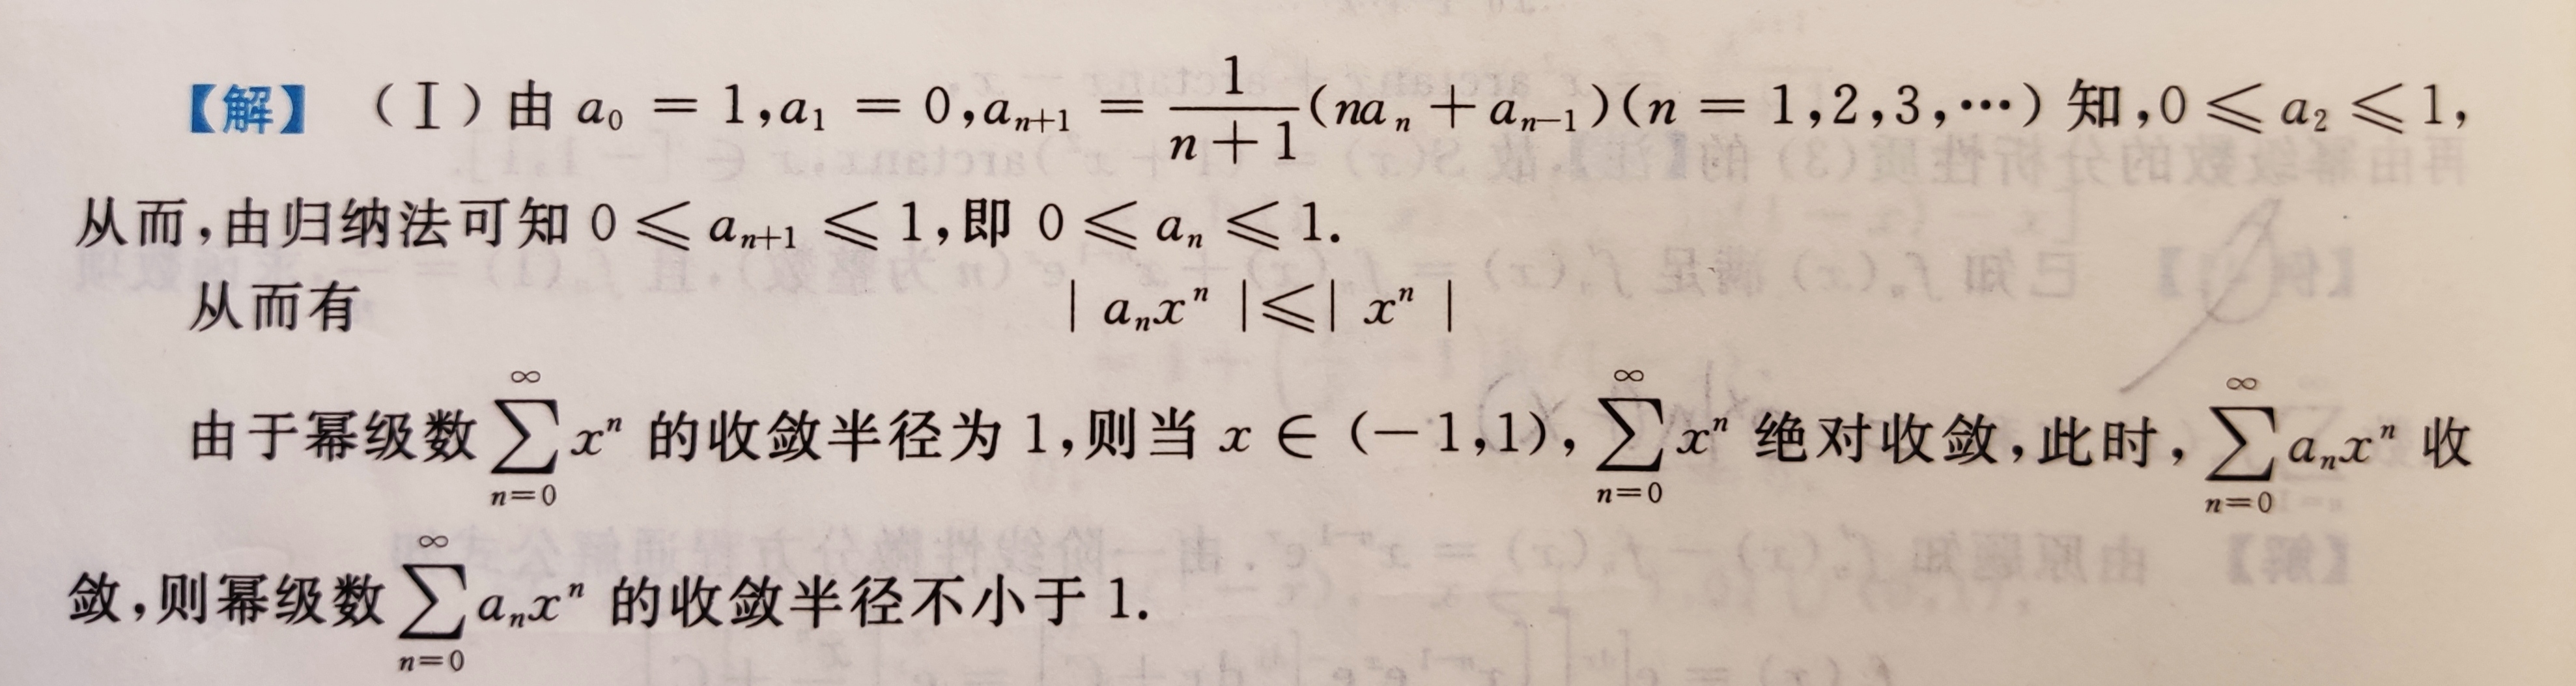 【解】 (Ⅰ)由 a₀ = 1,a₁ = 0,aₙ₊₁ = \frac{1}{n+1}(naₙ + aₙ₋₁)(n = 1,2,3,⋯) 知,0 ⩽ a₂ ⩽ 1,
从而,由归纳法可知 0 ⩽ aₙ₊₁ ⩽ 1,即 0 ⩽ aₙ ⩽ 1.
从而有 | aₙxⁿ |⩽| xⁿ |
由于幂级数 \sum_{n=0}^{∞} xⁿ 的收敛半径为 1,则当 x ∈ (-1,1), \sum_{n=0}^{∞} xⁿ 绝对收敛,此时, \sum_{n=0}^{∞} aₙxⁿ 收
敛,则幂级数 \sum_{n=0}^{∞} aₙxⁿ 的收敛半径不小于 1.